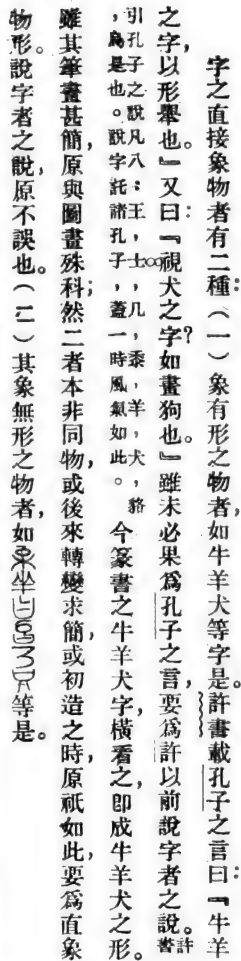 字之直接象物者有二種：（一）象有形之物者，如牛羊犬等字是。許書載孔子之言曰：『牛羊
之字，以形舉也。』又曰：『視犬之字？如畫狗也。』雖未必果爲孔子之言，要爲許以前說字者之說。許書
引孔子之說凡八：王，士，几，黍，羊，犬，貉，爲是也。說字託諸孔子，蓋一時風氣如此。今篆書之牛羊犬字，橫看之，卽成牛羊犬之形。
雖其筆畫甚簡，原與圖畫殊科；然二者本非同物，或後來轉變求簡，或初造之時，原祇如此，要爲直象
物形。說字者之說，原不誤也。（二）其象無形之物者，如等是。